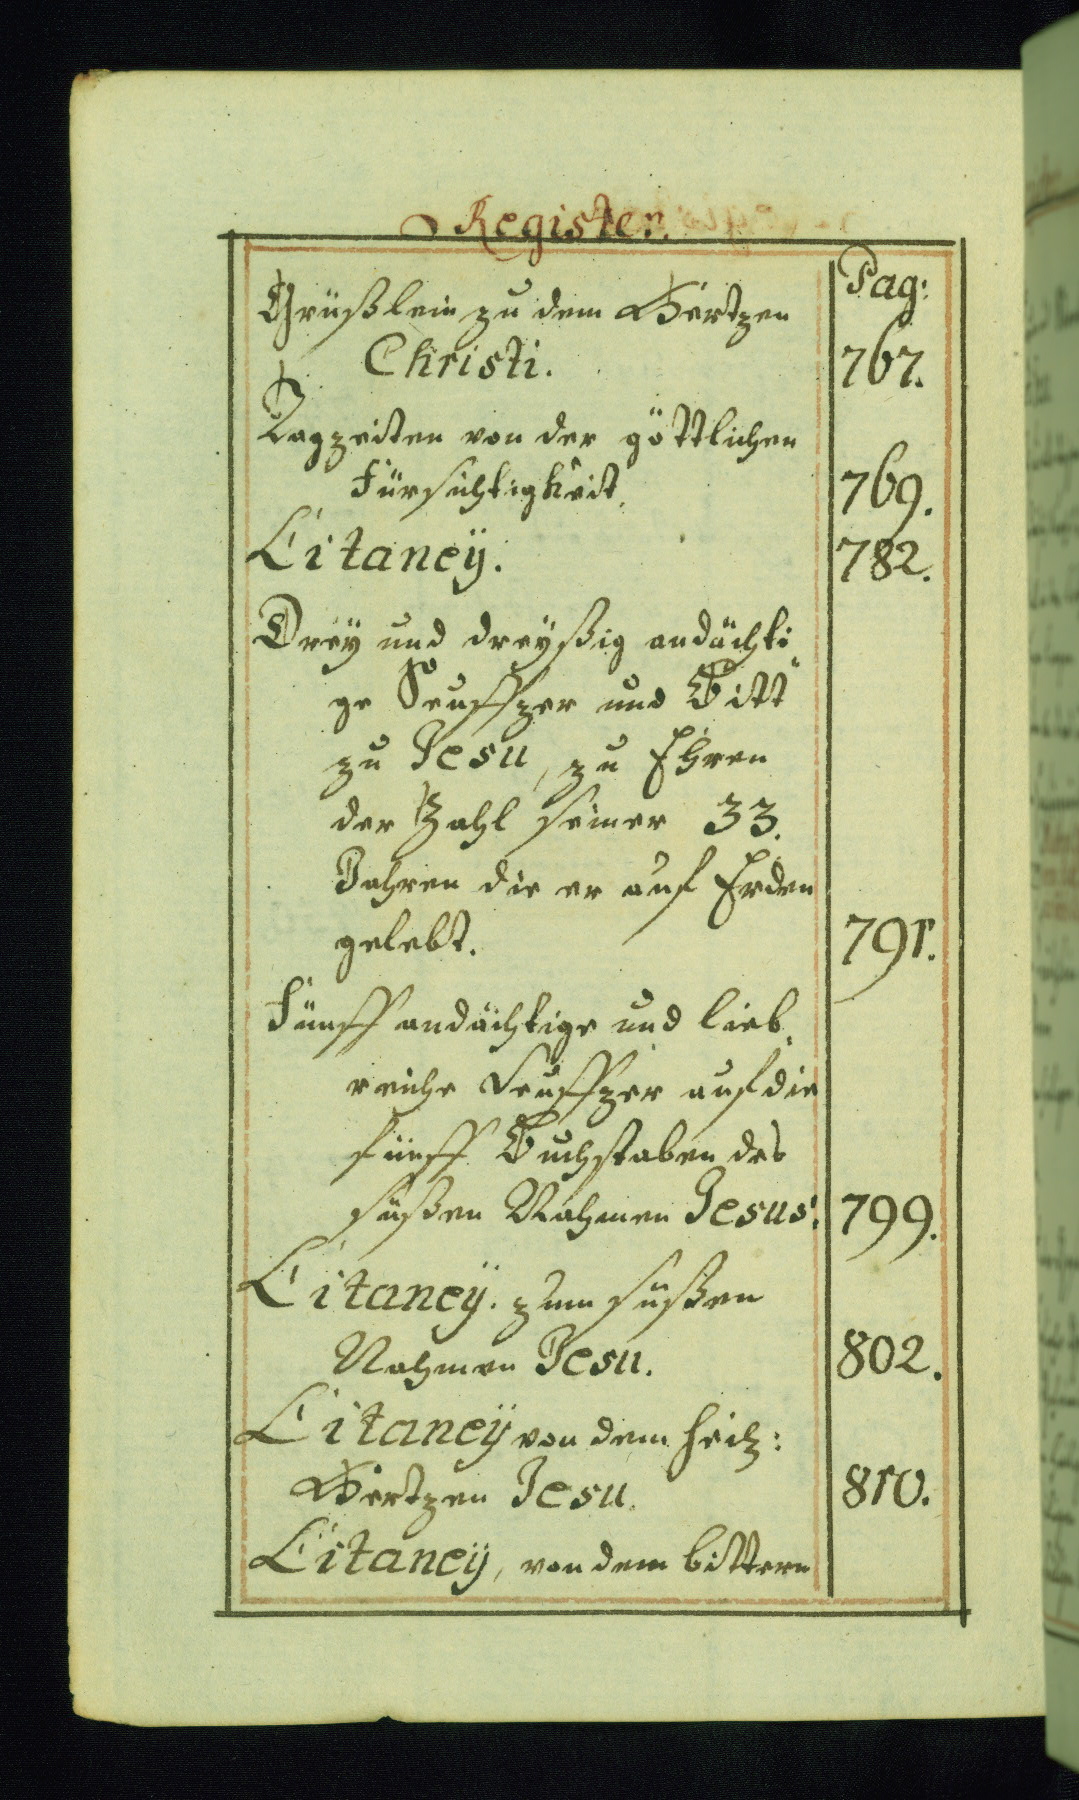 Register.
Pag:
Grüßlein zu dem Hertzen
Christi. 767.
Tagzeiten von der göttlichen
Fürsichtigkeit. 769.
Litaneÿ. 782.
Dreÿ und dreÿßig andächti
ge Seuffzer und Bitt
zu Jesu, zu Ehren
der Zahl seiner 33.
Jahren die er auf Erden
gelebt. 791.
Fünff andächtige und lieb
reiche Seuffzer auf die
fünff Buchstaben des
süßen Nahmen Jesus: 799.
Litaneÿ. zum süßen
Nahmen Jesu. 802.
Litaneÿ von dem heilg:
Hertzen Jesu. 810.
Litaneÿ, von dem bittern